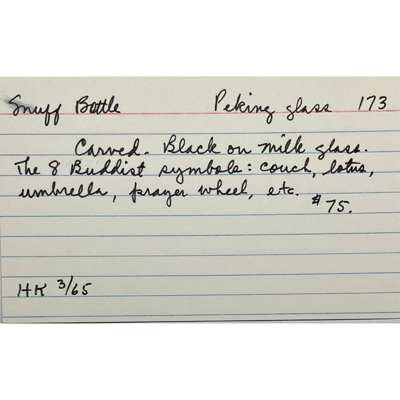 Snuff Bottle Peking glass 173
Carved. Black on milk glass.
The 8 Buddist symbols: couch, lotus,
umbrella, prayer wheel, etc.
$75.
HK 3/65